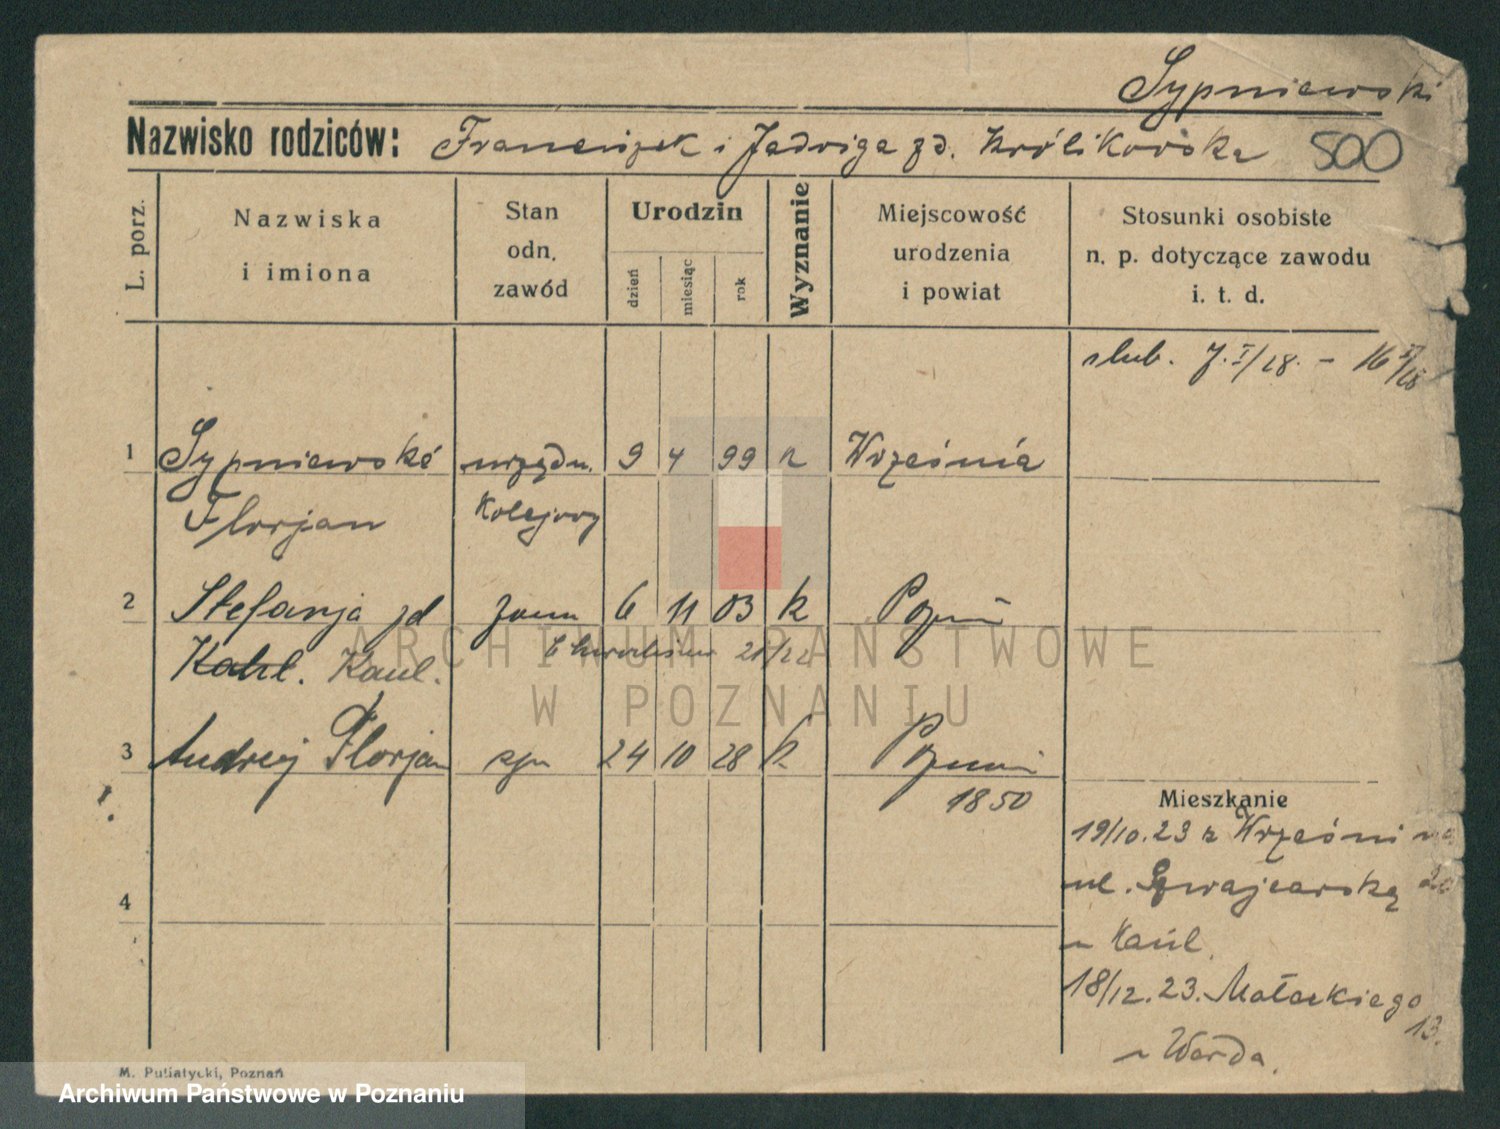 Sypniewski
Nazwisko rodziców: Franciszek i Jadwiga zd. Królikowska 500
L. porz.
Nazwiska
i imiona
Stan
odn.
zawód
Urodzin
dzień
miesiąc
rok
Wyznanie
Miejscowość
urodzenia
i powiat
Stosunki osobiste
n. p. dotyczące zawodu
i. t. d.
ślub. 7. I/28. - 16
1 Sypniewski urzędn. 9 4 99 k Września
Florjan Kolejowy
2 Stefanja zd żona 6 11 03 k Poznań
Kahl. Kaul. 21/22
3 Andrzej Florjan syn 24 10 28 k Poznań
1850
4
Mieszkanie
19/10.23 z Wrześni na
ul. Szwajcarską 20
u Kaul.
18/12.23. Małeckiego
13.
u Warda.
M. Putiatycki, Poznań
ARCHIWUM PAŃSTWOWE
W POZNANIU
Archiwum Państwowe w Poznaniu